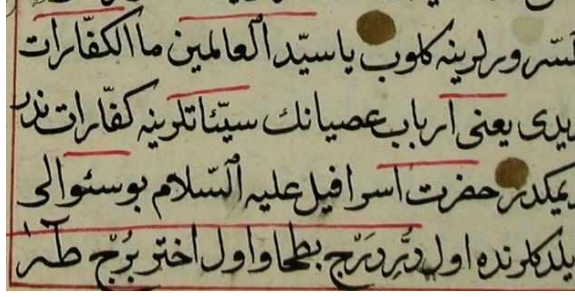 سرورلرینه كلوب یا سیّد العالمین ما الكفّارات
یدی یعنی ارباب عصیانك سیّئاتلرینه كفّارات ندر
یمكدر حضرت اسرافیل علیه السّلام بو سئوالی
یلدكلرنده اول دُرِّ دَرْجِ بطحا و اول اختر بُرْجِ